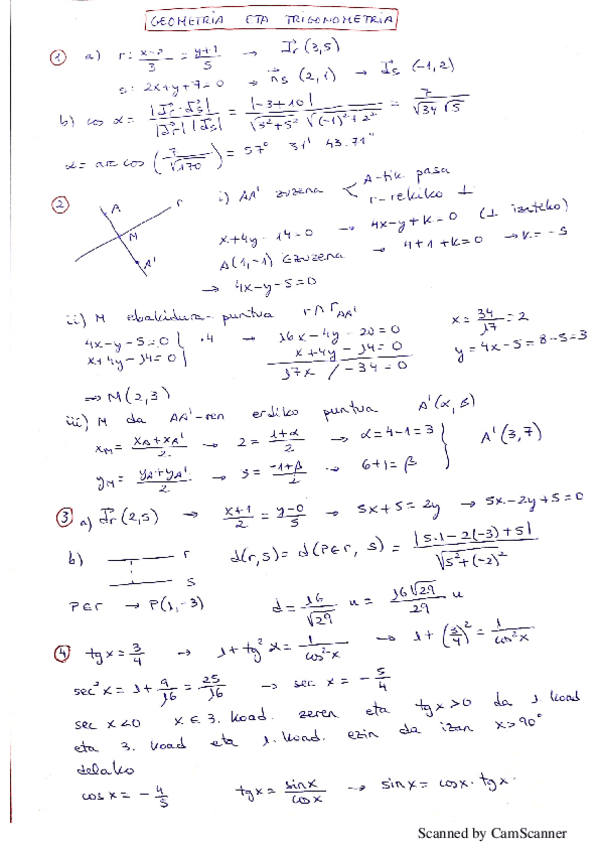 GEOMETRIA ETA TRIGONOMETRIA
① a) r: x-2/3 = y+1/5 → d⃗r (3,5)
s: 2x+y+7=0 → n⃗s (2,1) → d⃗s (-1,2)
b) cos α = |d⃗r · d⃗s| / |d⃗r| |d⃗s| = |-3+10| / √3²+5² √(-1)²+2² = 7/√34 √5
α = arc cos (7/√170) = 57° 31' 43.71"
② A r M A' i) AA' zuzena < A-tik pasa
r-rekiko ⊥
x+4y-14=0 → 4x-y+k=0 (⊥ izateko)
A(1,-1) ∈ zuzena → 4+1+k=0 → k=-5
→ 4x-y-5=0
ii) M ebakidura-puntua r∩rAA'
4x-y-5=0 } ·4 → 16x-4y-20=0 x = 34/17 = 2
x+4y-14=0 x+4y-14=0 y=4x-5=8-5=3
17x / -34=0
⇒ M(2,3)
iii) M da AA'-ren erdiko puntua A'(α,β)
xM = xA+xA'/2 → 2 = 1+α/2 → α=4-1=3 } A'(3,7)
yM = yA+yA'/2 → 3 = -1+β/2 → 6+1=β
③ a) d⃗r (2,5) → x+1/2 = y-0/5 → 5x+5=2y → 5x-2y+5=0
b) r s d(r,s) = d(P∈r, s) = |5·1-2(-3)+5| / √5²+(-2)²
P∈r → P(1,-3) d = 16/√29 u = 16√29/29 u
④ tg x = 3/4 → 1+tg²x = 1/cos²x → 1+(3/4)² = 1/cos²x
sec²x = 1+9/16 = 25/16 → sec x = -5/4
sec x<0 x∈3. koad. zeren eta tg x>0 da 1. koad
eta 3. koad eta 1. koad. ezin da izan x>90°
delako
cos x = -4/5 tg x = sin x/cos x → sin x = cos x · tg x.
Scanned by CamScanner